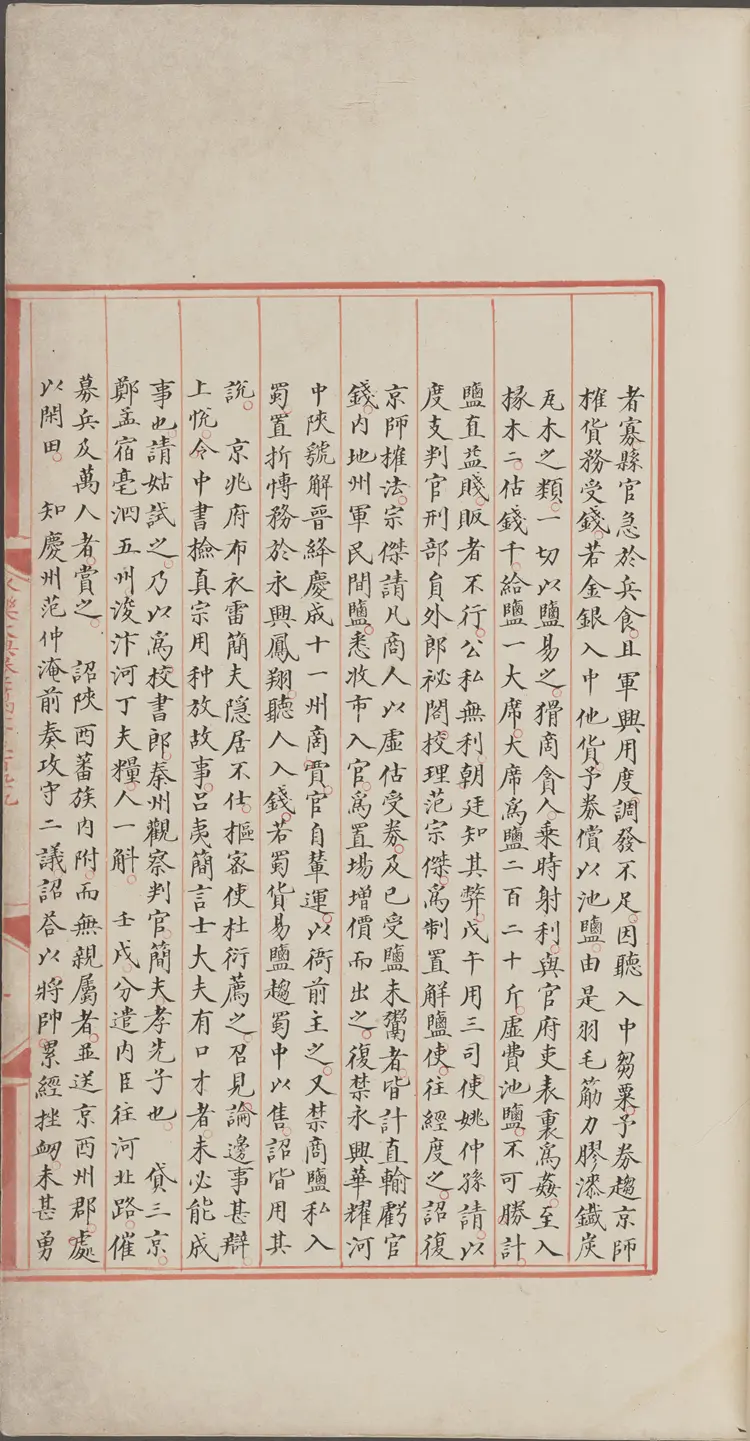 者寡縣官急於兵食。且軍興用度調發不足。因聽入中芻粟。予券趨京師
榷貨務受錢。若金銀入中他貨。予券償以池鹽。由是羽毛筋力膠漆鐵炭
瓦木之類。一切以鹽易之。猾商貪人。乘時射利。與官府吏表裏為姦。至入
椽木二。估錢千。給鹽一大席。大席為鹽二百二十斤。虛費池鹽。不可勝計。
鹽直益賤。販者不行。公私無利。朝廷知其弊。戊午用三司使姚仲孫請。以
度支判官刑部員外郎祕閣挍理范宗傑。為制置解鹽使。往經度之。詔復
京師榷法。宗傑請凡商人以虛估受券。及已受鹽未鬻者。皆計直輸虧官
錢。內地州軍民間鹽。悉收市入官。為置場增價而出之。復禁永興華耀河
中陝虢解晉絳慶成十一州商賈。官自輦運。以衙前主之。又禁商鹽私入
蜀。置折慱務於永興鳳翔。聽人入錢。若蜀貨易鹽趨蜀中以售。詔皆用其
說。　京兆府布衣雷簡夫隱居不仕。樞密使杜衍薦之。召見論邊事甚辯。
上悅。令中書撿真宗用种放故事。呂夷簡言士大夫有口才者。未必能成
事也。請姑試之。乃以為校書郎。秦州觀察判官。簡夫孝先子也。　貸三京。
鄭孟宿亳泗五州浚汴河丁夫糧。人一斛。　壬戌。分遣內臣往河北路。催
募兵及萬人者。賞之。　詔陝西蕃族內附。而無親屬者。並送京西州郡。處
以閑田。　知慶州范仲淹前奏攻守二議詔荅以將帥。累經挫衂。未甚勇